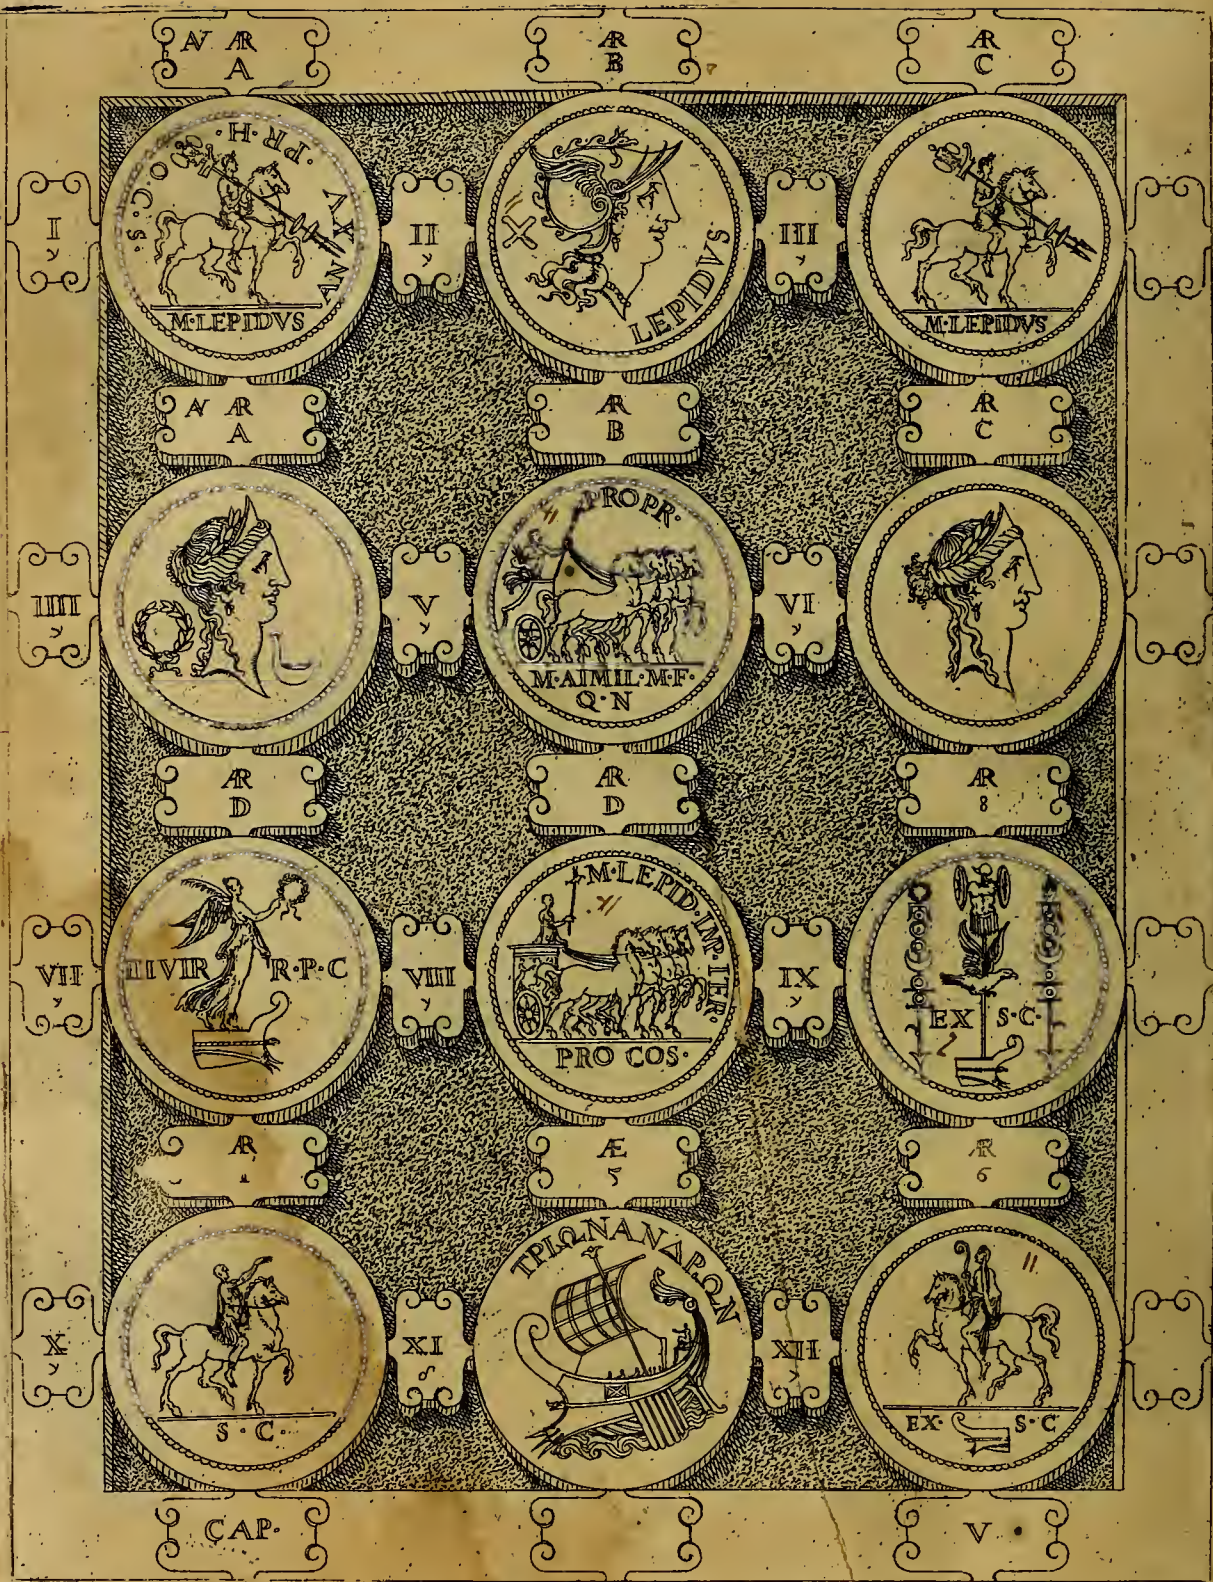 AV AR
A
AR
B
AR
C
I
·S·C·O·H·PR·H·
AN XV
M·LEPIDVS
II
X
LEPIDVS
III
M·LEPIDVS
AV AR
A
AR
B
AR
C
IIII
V
PROPR·
M·AIMIL·M·F·
Q·N
VI
AR
D
AR
D
AR
8
VII
IIIVIR R·P·C
VIII
M·LEPID·IMP·TER·
PRO COS·
IX
EX S·C·
AR
Æ
5
AR
6
X
S·C·
XI
8
ΤΡΙΩΝΑΝΔΡΩΝ
XII
EX· S·C
CAP·
V